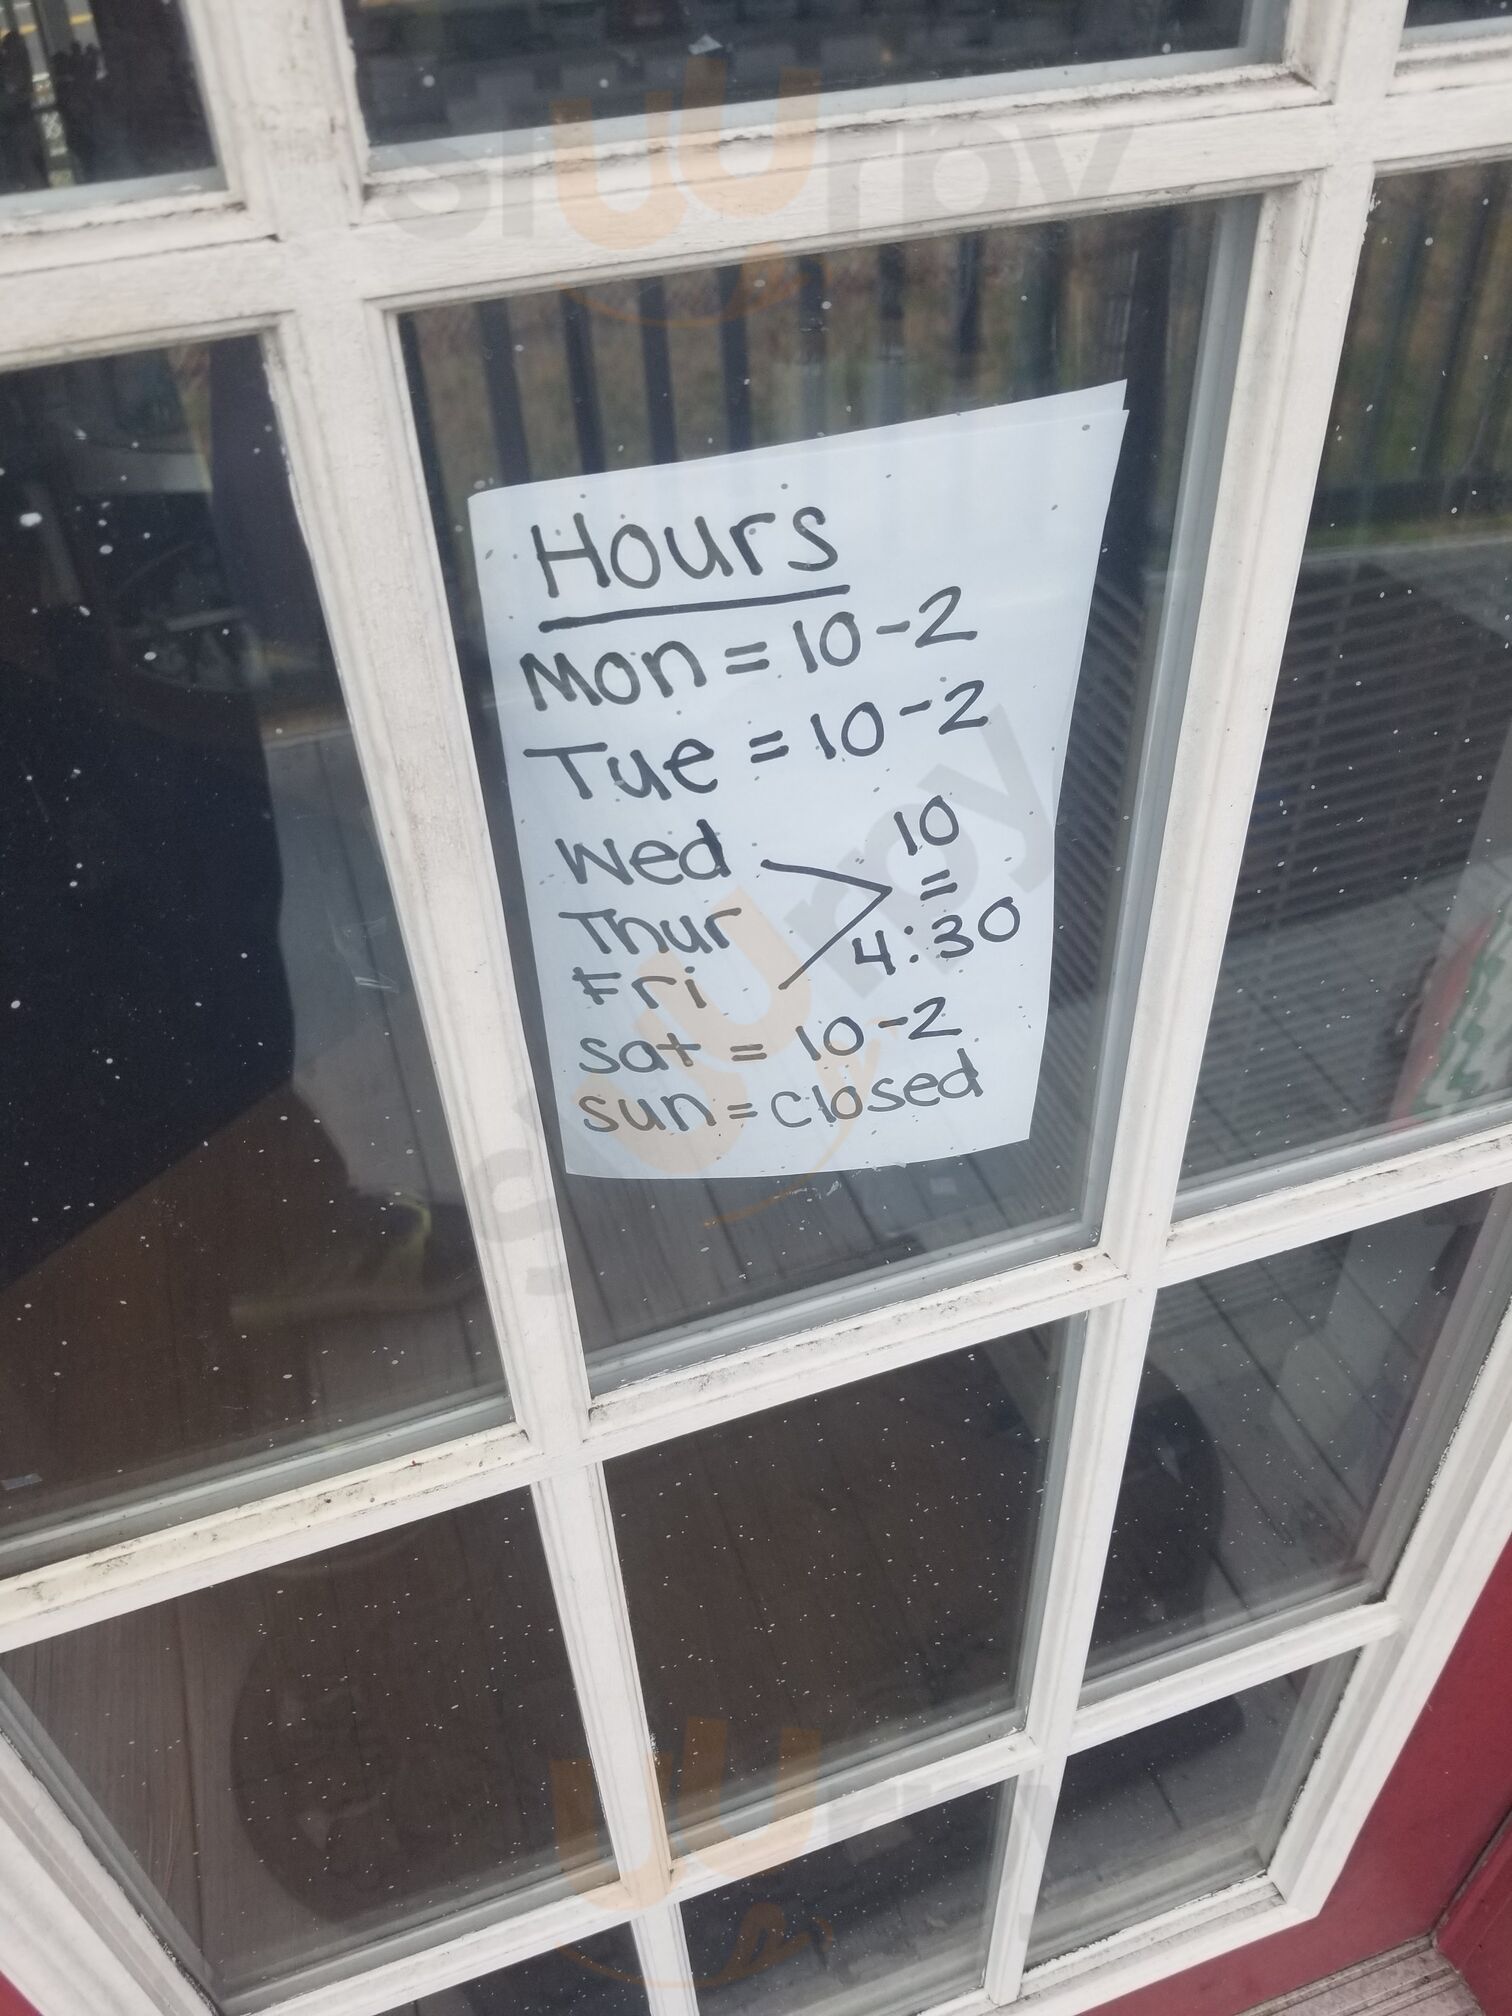 Hours
Mon = 10-2
Tue = 10-2
Wed
Thur
Fri
10
=
4:30
Sat = 10-2
Sun = closed
sluurpy
sluurpy